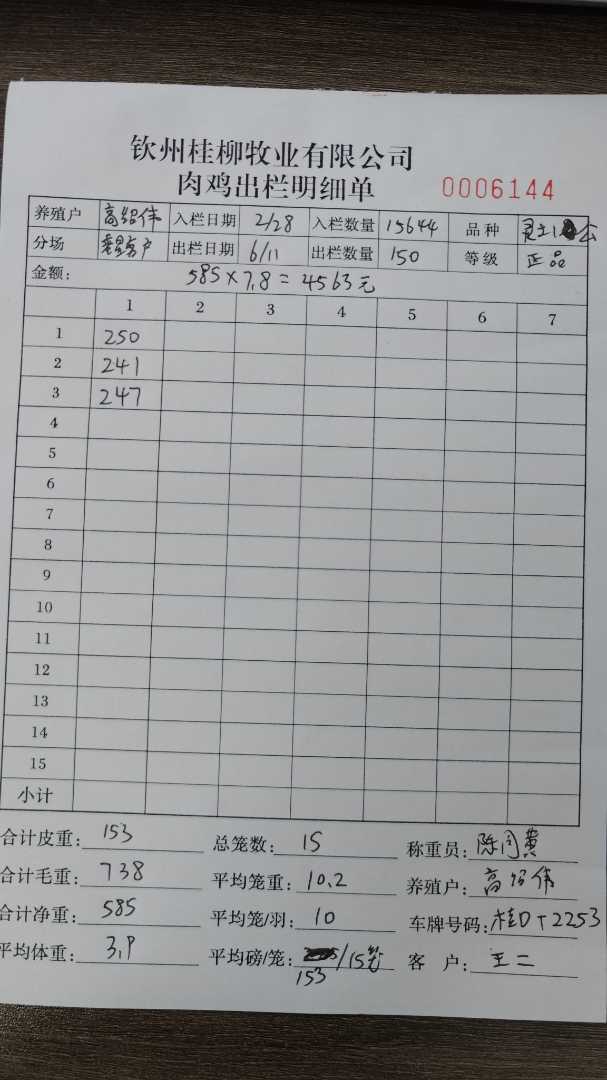 钦州桂柳牧业有限公司
肉鸡出栏明细单 0006144
养殖户 高绍伟 入栏日期 2/28 入栏数量 15644 品种 灵土1 公
分场 出栏日期 6/11 出栏数量 150 等级 正品
金额: 585×7.8=4563元
1 2 3 4 5 6 7
1 250
2 241
3 247
4
5
6
7
8
9
10
11
12
13
14
15
小计
合计皮重: 153 总笼数: 15 称重员: 陈闰黄
合计毛重: 738 平均笼重: 10.2 养殖户: 高绍伟
合计净重: 585 平均笼/羽: 10 车牌号码: 桂DT2253
平均体重: 3.9 平均磅/笼: 153/15笼 客 户: 王二